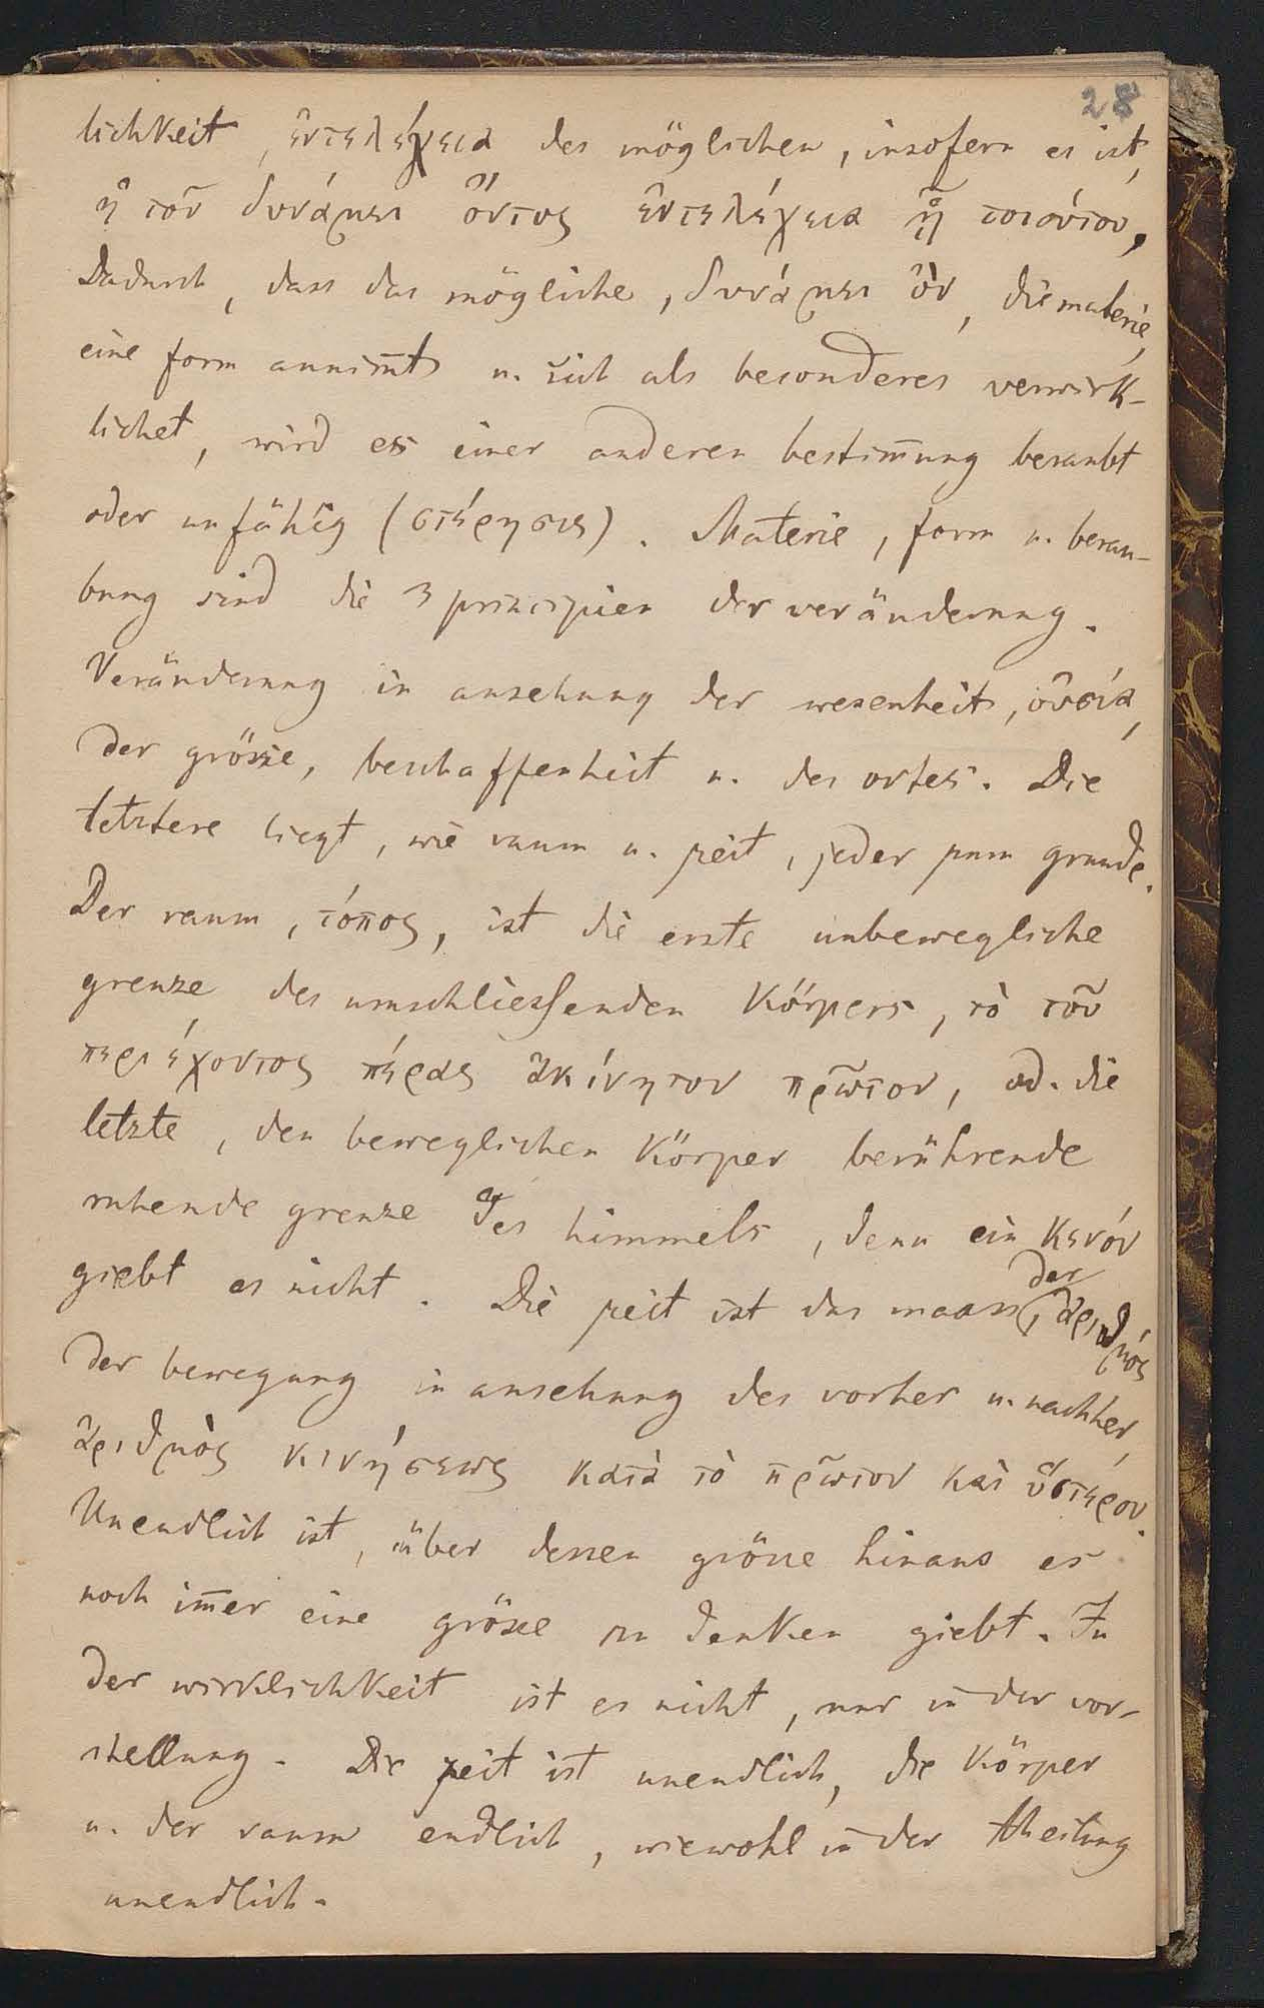 28
lichkeit, ἐντελέχεια des möglichen, insofern es ist,
ἡ τοῦ δυνάμει ὄντος ἐντελέχεια ᾗ τοιούτου,
Dadurch, dass das mögliche, δυνάμει ὂν, die materie,
eine form annim̄t u. sich als besonderes verwirk-
lichet, wird es einer anderen bestim̄ung beraubt
oder unfähig (στέρησις). Materie, form u. berau-
bung sind die 3 principien der veränderung.
Veränderung in ansehung der wesenheit, οὐσία,
der grösse, beschaffenheit u. des ortes. Die
letztere liegt, wie raum u. zeit, jeder zum grunde.
Der raum, τόπος, ist die erste unbewegliche
grenze des umschliessenden Körpers, τὸ τοῦ
περιέχοντος πέρας ἀκίνητον πρῶτον, od. die
letzte, den beweglichen Körper berührende
ruhende grenze des himmels, denn ein κενόν
giebt es nicht. Die zeit ist das maass, der ἀριθμός
der bewegung in ansehung des vorher u. nachher,
ἀριθμὸς κινήσεως κατὰ τὸ πρῶτον καὶ ὕστερον.
Unendlich ist, über dessen grösse hinaus es
noch im̄er eine grösse zu denken giebt. In
der wirklichkeit ist es nicht, nur in der vor-
stellung. Die zeit ist unendlich, die Körper
u. der raum endlich, wiewohl in der theilung
unendlich.